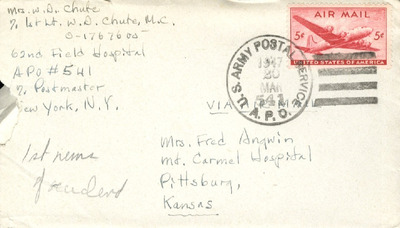 Mrs. W. D. Chute
% 1st Lt. W. D. Chute, M.C.
O-1767605
62nd Field Hospital
APO #541
% Postmaster
New York, N.Y.
AIR MAIL
5¢ 5¢
UNITED STATES OF AMERICA
U.S. ARMY POSTAL SERVICE
1947
20
MAR
541
A.P.O.
VIA
Mrs. Fred Angwin
Mt. Carmel Hospital
Pittsburg,
Kansas
1st news